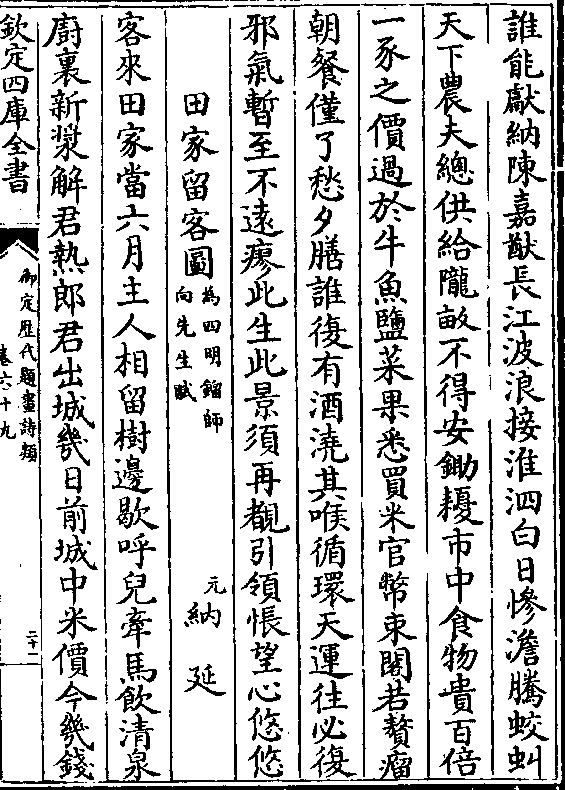 誰能獻納陳嘉猷長江波浪接淮泗白日慘澹騰蛟虬
天下農夫總供給隴畝不得安鋤耰市中食物貴百倍
一豕之價過於牛魚鹽菜果悉買米官幣束閣若贅瘤
朝餐僅了愁夕膳誰復有酒澆其喉循環天運往必復
邪氣暫至不遠瘳此生此景須再覩引領悵望心悠悠
田家留客圖為四明鎦師
向先生賦
元納延
客來田家當六月主人相留樹邊歇呼兒牽馬飲清泉
廚裏新漿解君熱郎君出城幾日前城中米價今幾錢
欽定四庫全書
御定歷代題畫詩類
卷六十九
二十一